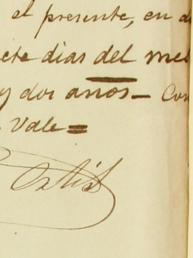 el presente, en
ete dias del me
y dos años — Con
Vale =
Ortiz